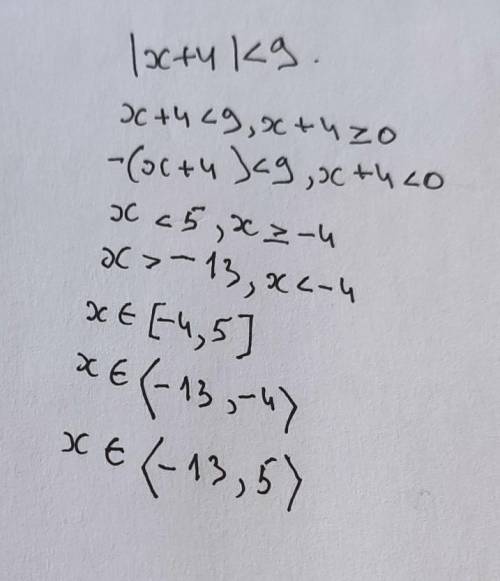 |x+4|<9.
x+4<9, x+4≥0
-(x+4)<9, x+4<0
x<5, x≥-4
x>-13, x<-4
x∈[-4,5]
x∈⟨-13,-4⟩
x∈⟨-13,5⟩